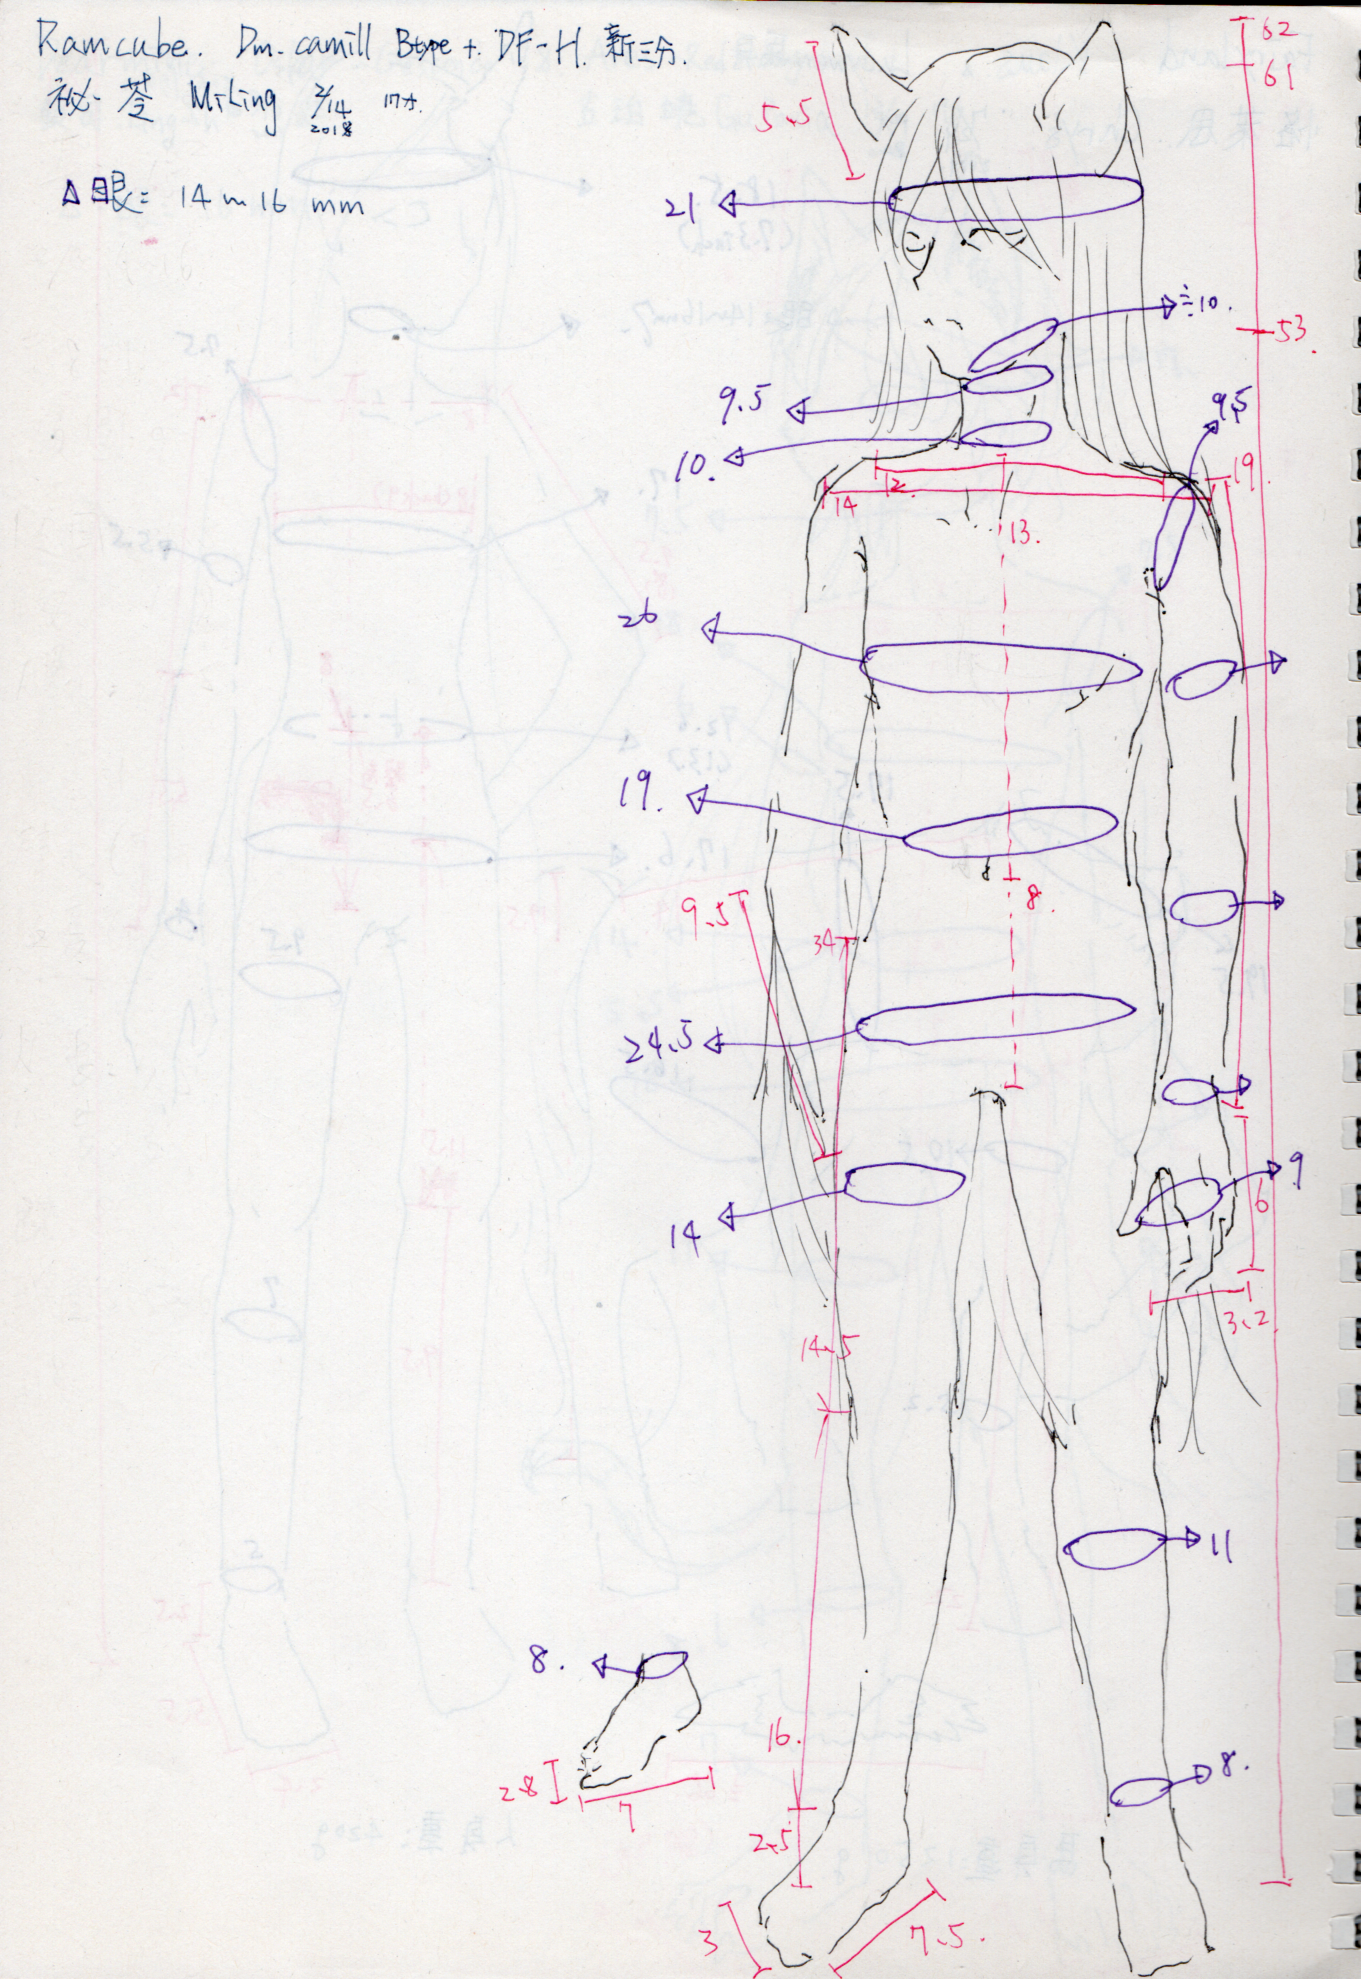 Ramcube. Dm-camill Btype + DF-H. 新三分.
祕苓 MiLing 2/14 2018
△眼= 14~16 mm
62
61
5.5
21
≒10.
53.
9.5
9.5
10.
12.
14
19.
13.
26
19.
8.
9.5
34
24.5
9
6
14
3.2
14.5
11
8.
16.
8.
2.8
7
2.5
3
7.5.